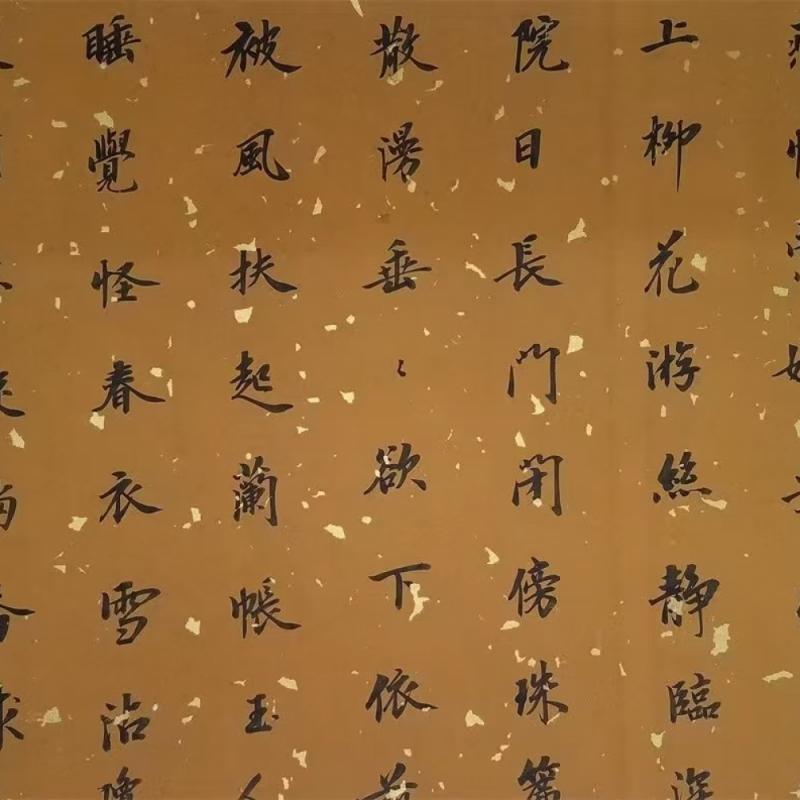 上柳花游絲靜臨深
院日長門閉傍珠簾
散漫垂〻欲下依前
被風扶起蘭帳玉人
睡覺怪春衣雪沾瓊